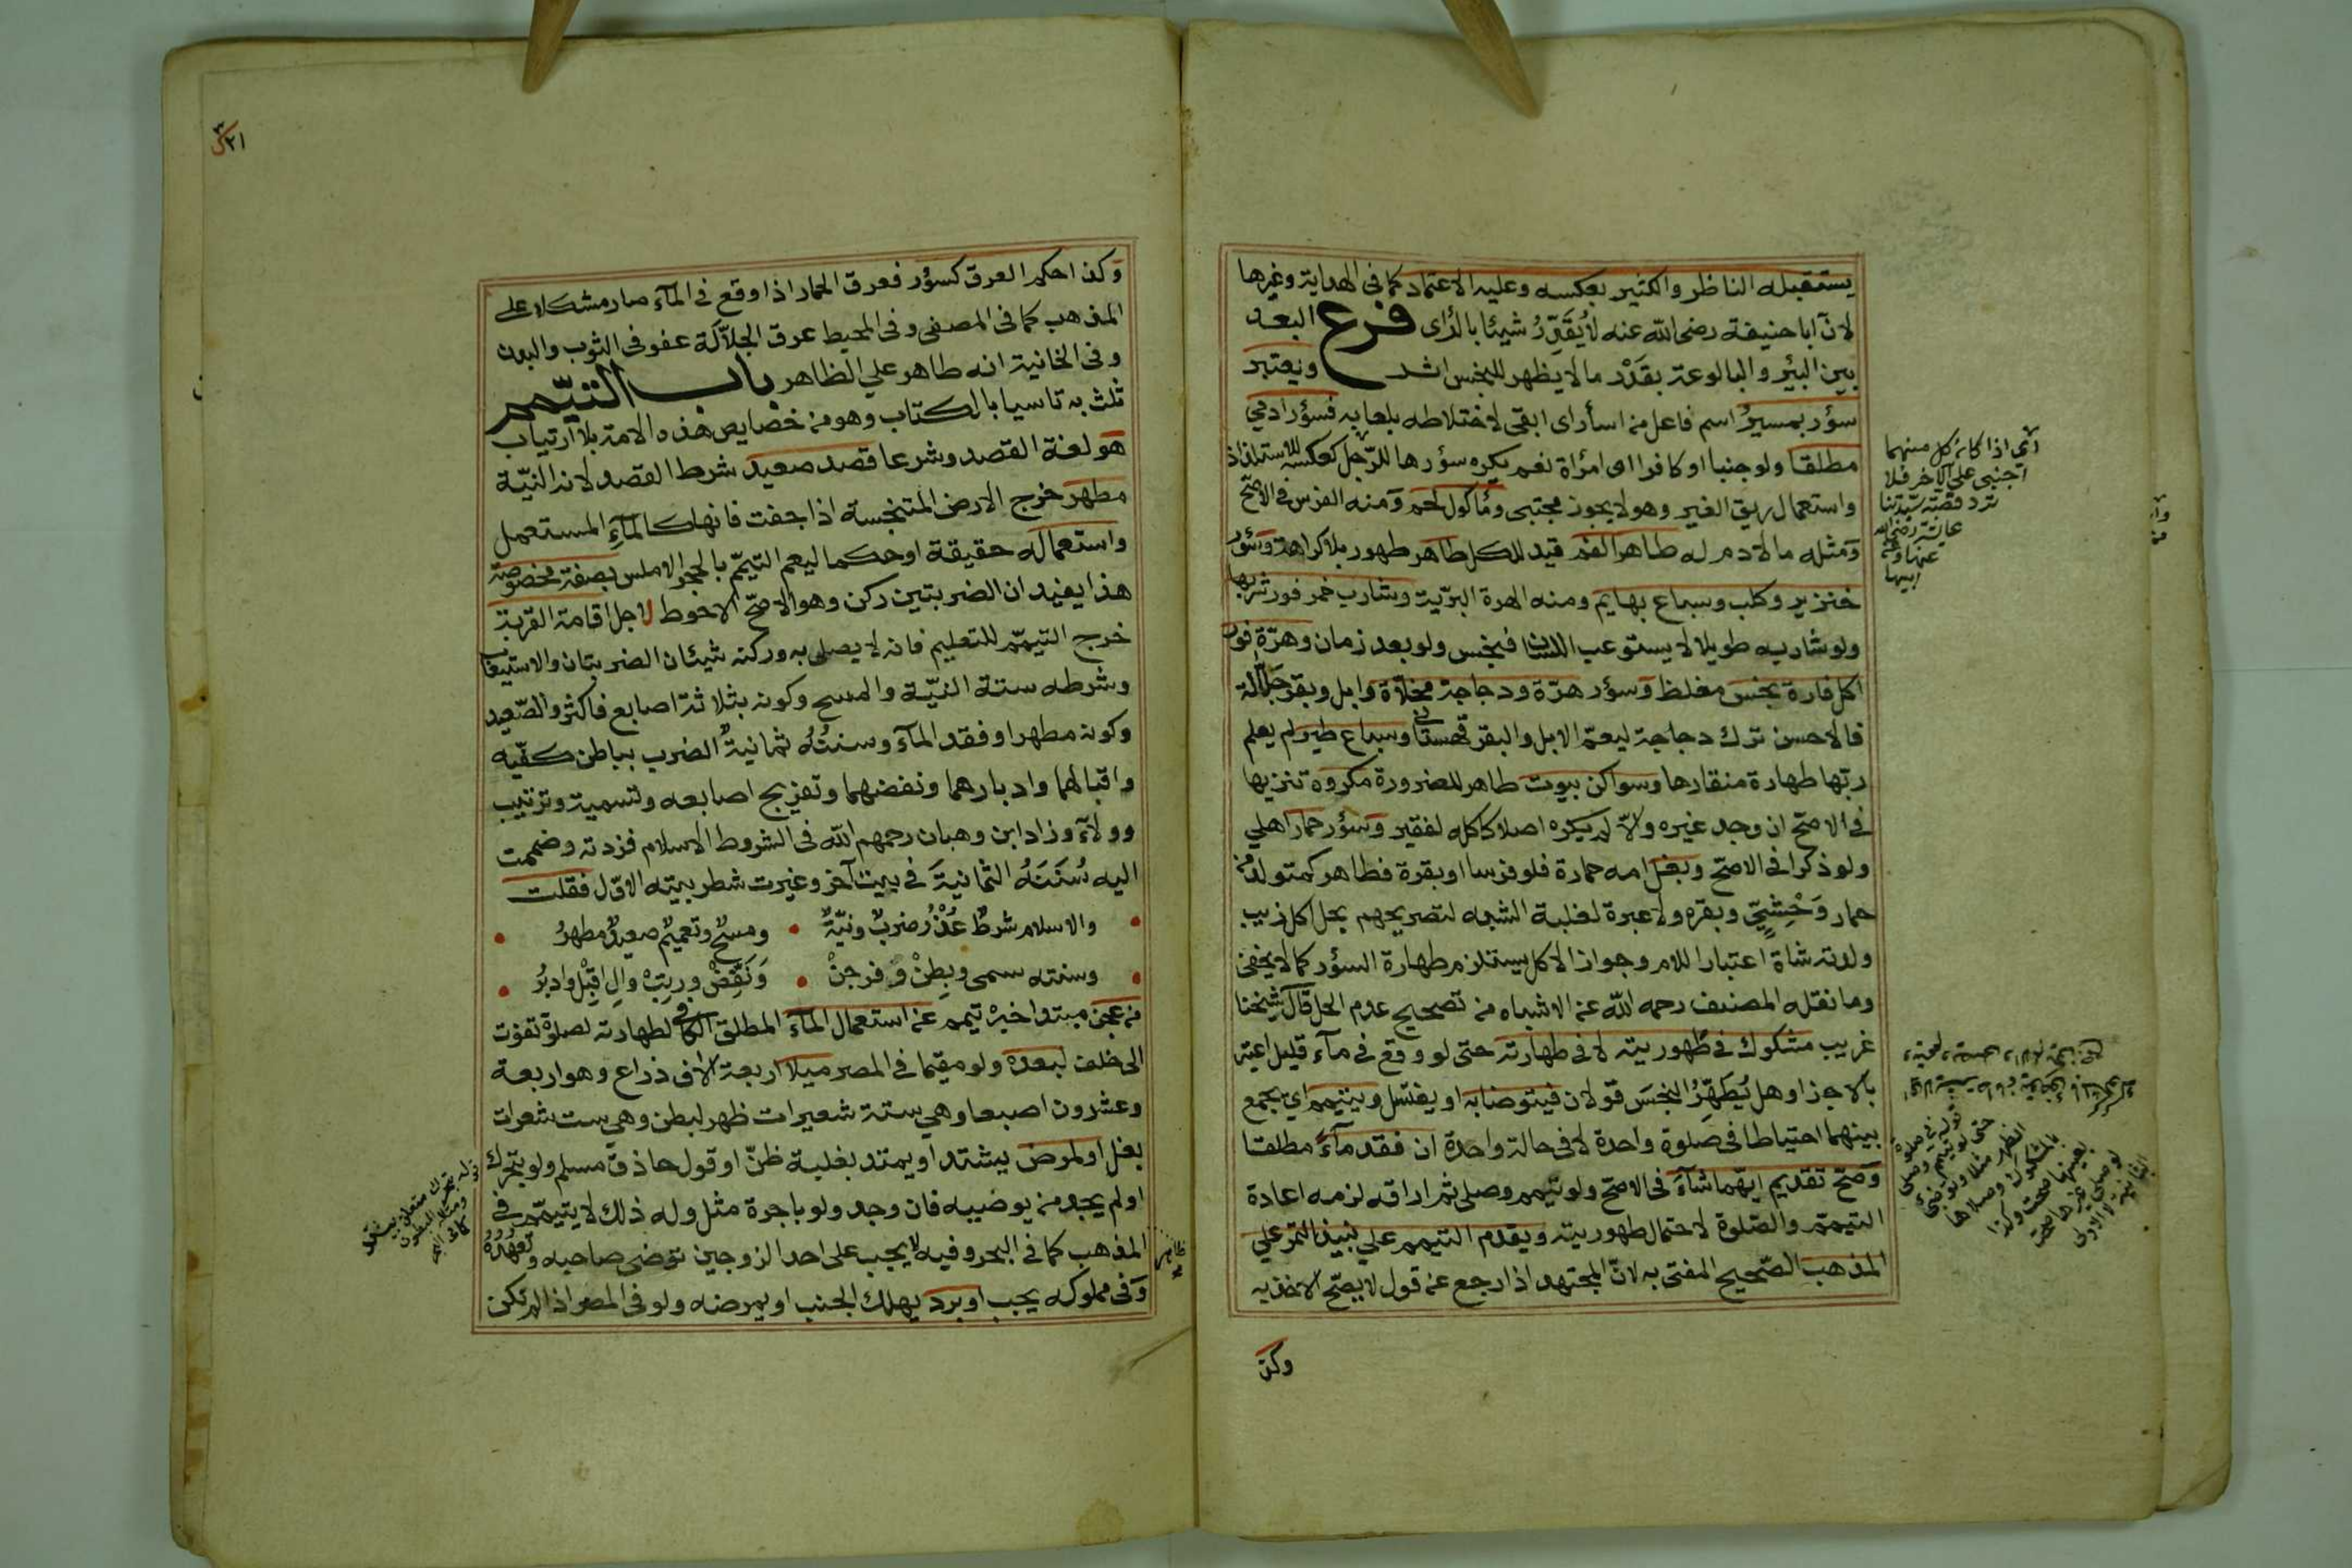 يستقبله الناظر والكثير بعكسه وعليه الاعتماد كما فى الهداية وغيرها
لان ابا حنيفة رضى الله عنه لا يُقَدِّرُ شيئا بالرأى فرع البعد
بين البئر والبالوعة بقدر ما لا يظهر للنجس اثر ويعتبر
سؤر بمسيرٍ اسم فاعل من اسأر اى ابقى لاختلاطه بلعابه فسؤر ادمي
مطلقا ولو جنبا او كافرا او امرأة نعم يكره سؤرها للرجل كعكسه للاستلذاذ
واستعمال ريق الغير وهو لا يجوز مجتبى ومأكول لحم ومنه الفرس فى الاصح
ومثله ما لا دم له طاهر الفم قيد للكل طاهر طهور بلا كراهة وسؤر
خنزير وكلب وسباع بهايم ومنه الهرة البرّية وشارب خمر فور شربها
ولو شاربه طويلا لا يستوعب اللسان فنجس ولو بعد زمان وهرّة فور
اكل فارة نجس مغلظ وسؤر هرّة ودجاجة مخلاّة وابل وبقر جلّالة
فالاحسن ترك دجاجة ليعمّ الابل والبقر قهستانى وسباع طير لم يعلم
ربّها طهارة منقارها وسواكن بيوت طاهر للضرورة مكروه تنزيها
فى الاصح ان وجد غيره والّا لم يكره اصلا كاكله لفقير وسؤر حمار اهلي
ولو ذكرا فى الاصح وبغل امه حمارة فلو فرسا او بقرة فطاهر كمتولد من
حمار وَحْشِيّ وبقره ولا عبرة لغلبة الشبه لتصريحهم بحل اكل ذيب
ولدته شاة اعتبارا للام وجواز الاكل يستلزم طهارة السؤر كما لا يخفى
وما نقله المصنف رحمه الله عن الاشباه من تصحيح عدم الحل قال شيخنا
غريب مشكوك فى طهوريته لا فى طهارته حتى لو وقع فى مآء قليل اعتبر
بالاجزا وهل يُطَهِّرُ النجس قولان فيتوضا به او يغتسل ويتيمم اي يجمع
بينهما احتياطا فى صلوة واحدة لا فى حالة واحدة ان فقد مآءً مطلقا
وصحّ تقديم ايّهما شآء فى الاصح ولو تيمم وصلى ثم اراقه لزمه اعادة
التيمّم والصّلوة لاحتمال طهوريته ويقدم التيمم علي نبيذ التمر علي
المذهب الصّحيح المفتى به لانّ المجتهد اذا رجع عن قول لا يصّح الاخذ به
وكذ
اي اذا كان كل منهما
اجنبى على الآخر فلا
ترد قصّة سيّدتنا
عايشة رضى الله
عنها وعن
ابيها
٣٢١
وكذا حكم العرق كسؤر فعرق الحمار اذا وقع فى المآء صار مشكلا على
المذهب كما فى المصفى وفى المحيط عرق الجلّالة عفو فى الثوب والبدن
وفى الخانية انه طاهر علي الظاهر باب التيمّم
ثلث به تاسيا بالكتاب وهو من خصايص هذه الامة بلا ارتياب
هو لغة القصد وشرعا قصد صعيد شرط القصد لانه النيّة
مطهر خرج الارض المتنجسة اذا جفت فانها كالمآءِ المستعمل
واستعماله حقيقة او حكما ليعم التيمّم بالحجر الاملس بصفة مخصوصة
هذا يفيد ان الضربتين ركن وهو الاصحّ الاحوط لاجل اقامة القربة
خرج التيمّم للتعليم فانه لا يصلى به وركنه شيئان الضربتان والاستيعاب
وشرطه ستة النيّة والمسح وكونه بثلاثة اصابع فاكثر والصّعيد
وكونه مطهرا وفقد المآء وسننُهُ ثمانيةٌ الضرب بباطن كفّيه
واقبالهما وادبارهما ونفضهما وتفريج اصابعه وتسمية وترتيب
وولآء وزاد ابن وهبان رحمهم الله فى الشروط الاسلام فزدته وضممت
اليه سُنَنَهُ الثمانيةَ فى بيت آخر وغيرت شطر بيته الاوّل فقلت
والاسلام شرطٌ عُذْرُ ضربٌ ونيّةٌ • ومسحٌ وتعميمٌ صعيدٌ مطهرُ
وسنته سمى وبطِنْ وفرجنْ • وَنَفِّضْ ورتبْ والِ اقبِلْ وادبرُ
من عجز مبتدا خبره تيمم عن استعمال المآء المطلق الكافى لطهارته لصلوة تفوت
الى خلف لبعده ولو مقيما فى المصر ميلا اربعة الاف ذراع وهو اربعة
وعشرون اصبعا وهي ستة شعيرات ظهر لبطن وهي ست شعرات
بغل او لمرض يشتد او يمتد بغلبة ظنّ او قول حاذق مسلم ولو بتحرك
او لم يجد من يوضيه فان وجد ولو باجرة مثل وله ذلك لا يتيمّم فى
المذهب كما فى البحر وفيه لا يجب على احد الزوجين توضى صاحبه وتعهدهُ
وفى مملوكه يجب او برد يهلك الجنب او يمرضه ولو فى المصر اذا لم تكن